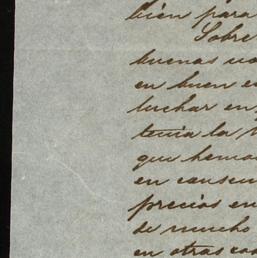 bien para
Sobre
buenas
en buen
luchar en
tenia la
que hemo
en consecu
precios en
de mucho
en otras cos